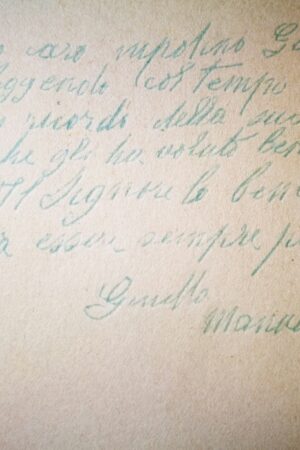 caro nipotino Gi
ggendo col tempo
ricordi della su
he gli ha voluto ben
Il Signore lo ben
esser sempre p